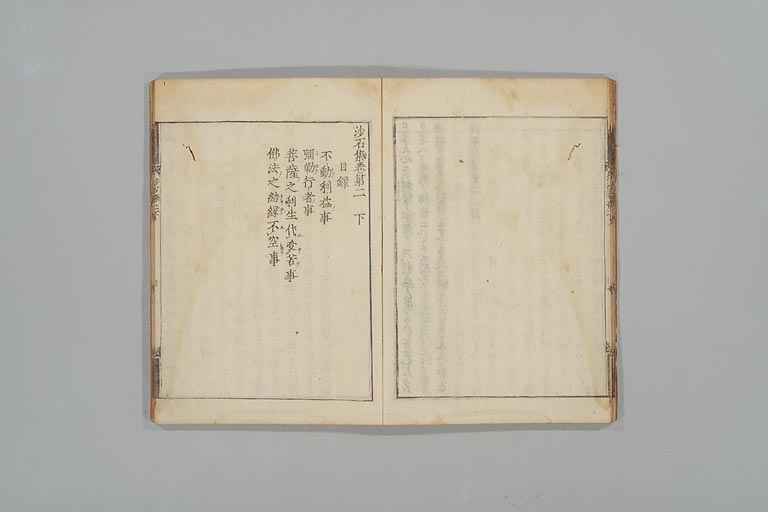 沙石集巻第二　下
目録
不動利益事
彌勒行者事
菩薩之利生代受苦事
佛法之結縁不空事